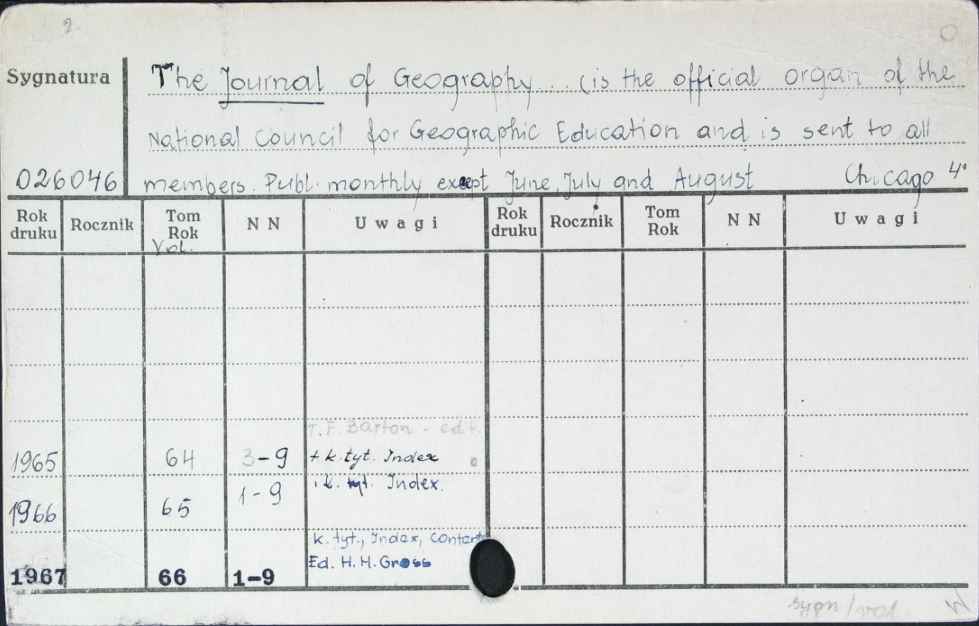 2.
Sygnatura
The Journal of Geography... (is the official organ of the
National Council for Geographic Education and is sent to all
026046
members. Publ. monthly except June, July and August Chicago 4°
Rok druku Rocznik Tom Rok N N Uwagi Rok druku Rocznik Tom Rok N N Uwagi
Vol.
T.F. Barton - edit.
1965 64 3-9 + k. tyt. Index
1966 65 1-9 i k. tyt. Index.
k. tyt., Index, Contents
1967 66 1-9 Ed. H. H. Gross
sygn/
W